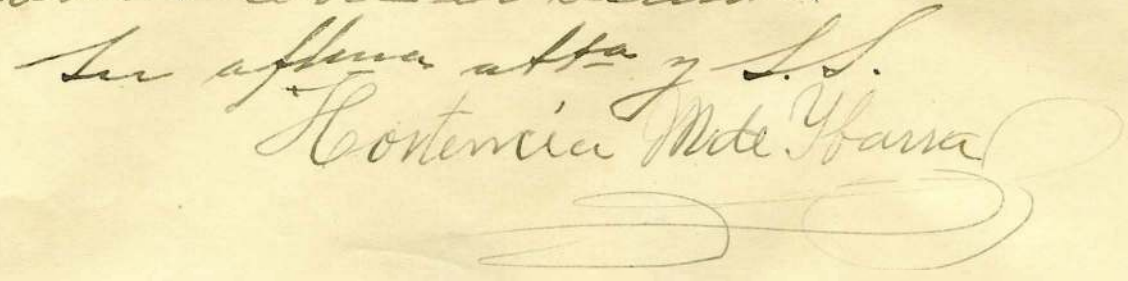 Su affma atta y S.S.
Hortencia M de Ybarra